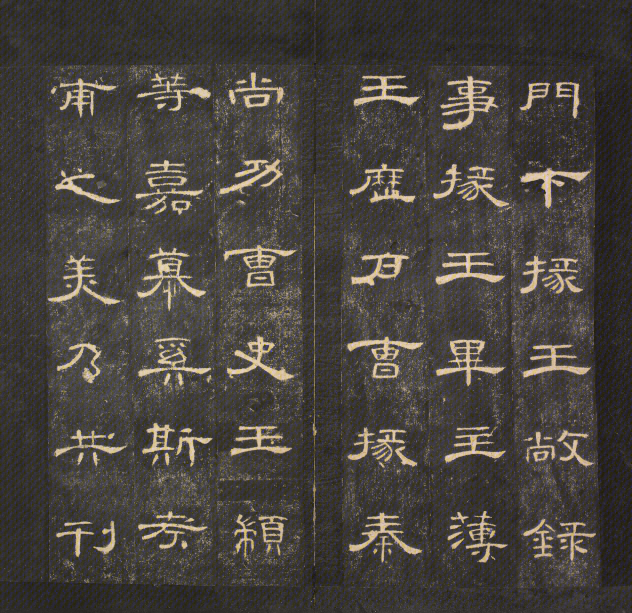 門下掾王敞録
事掾王畢主薄
王歷户曹掾秦
尚功曹史王顓
等嘉慕奚斯考
甫之美乃共刊